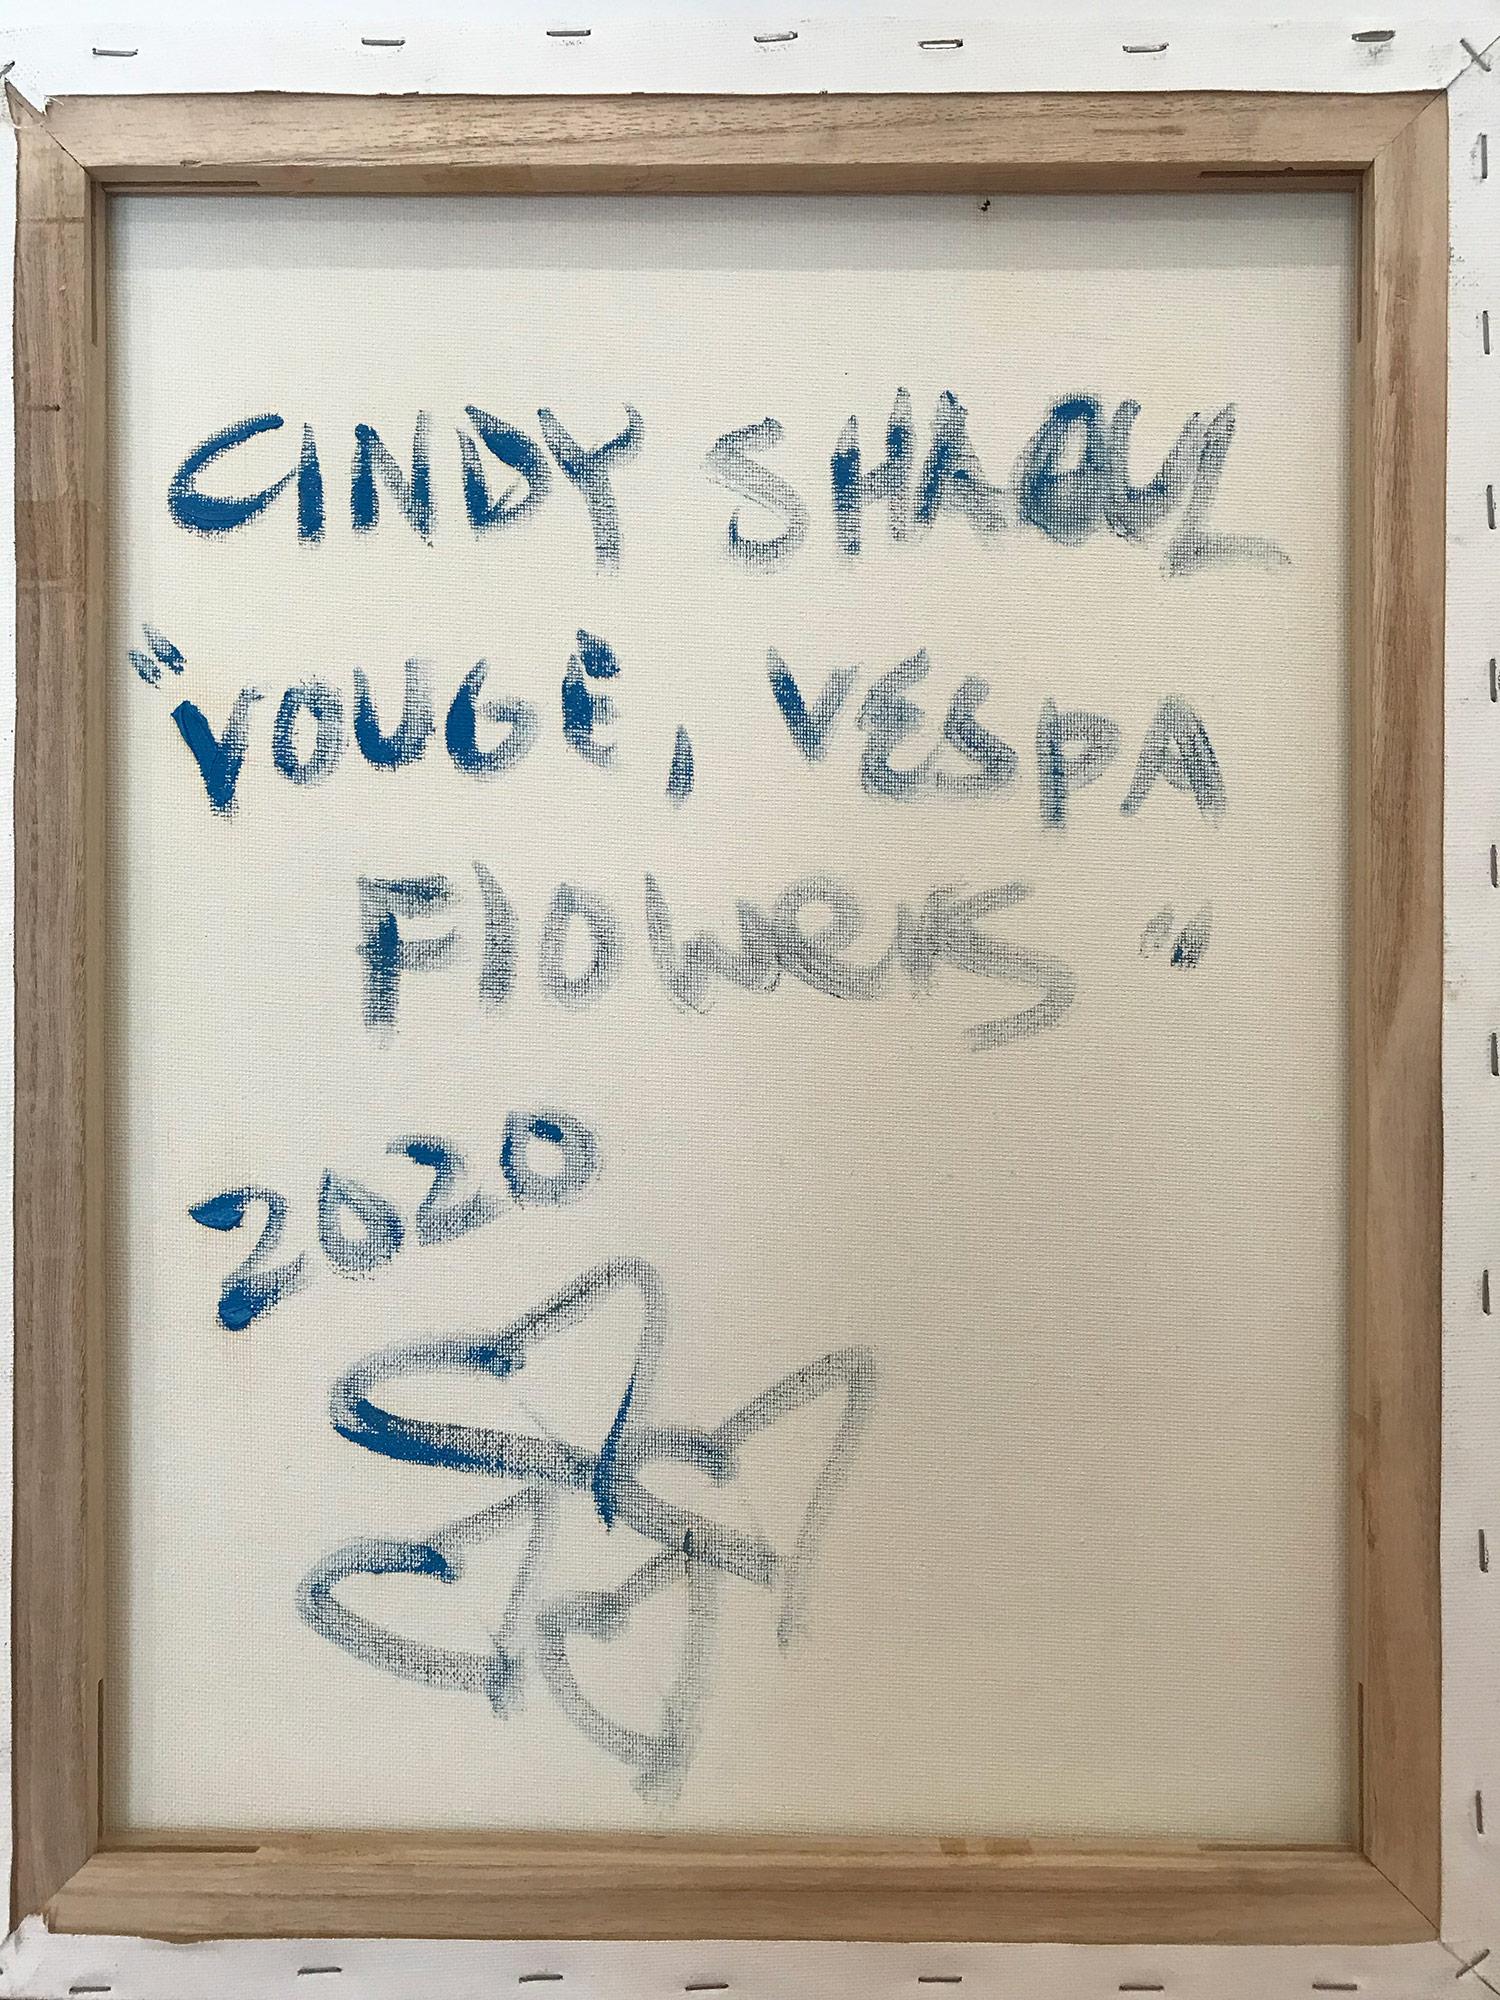 CINDY SHAOUL
"VOUGE, VESPA
Flowers"
2020